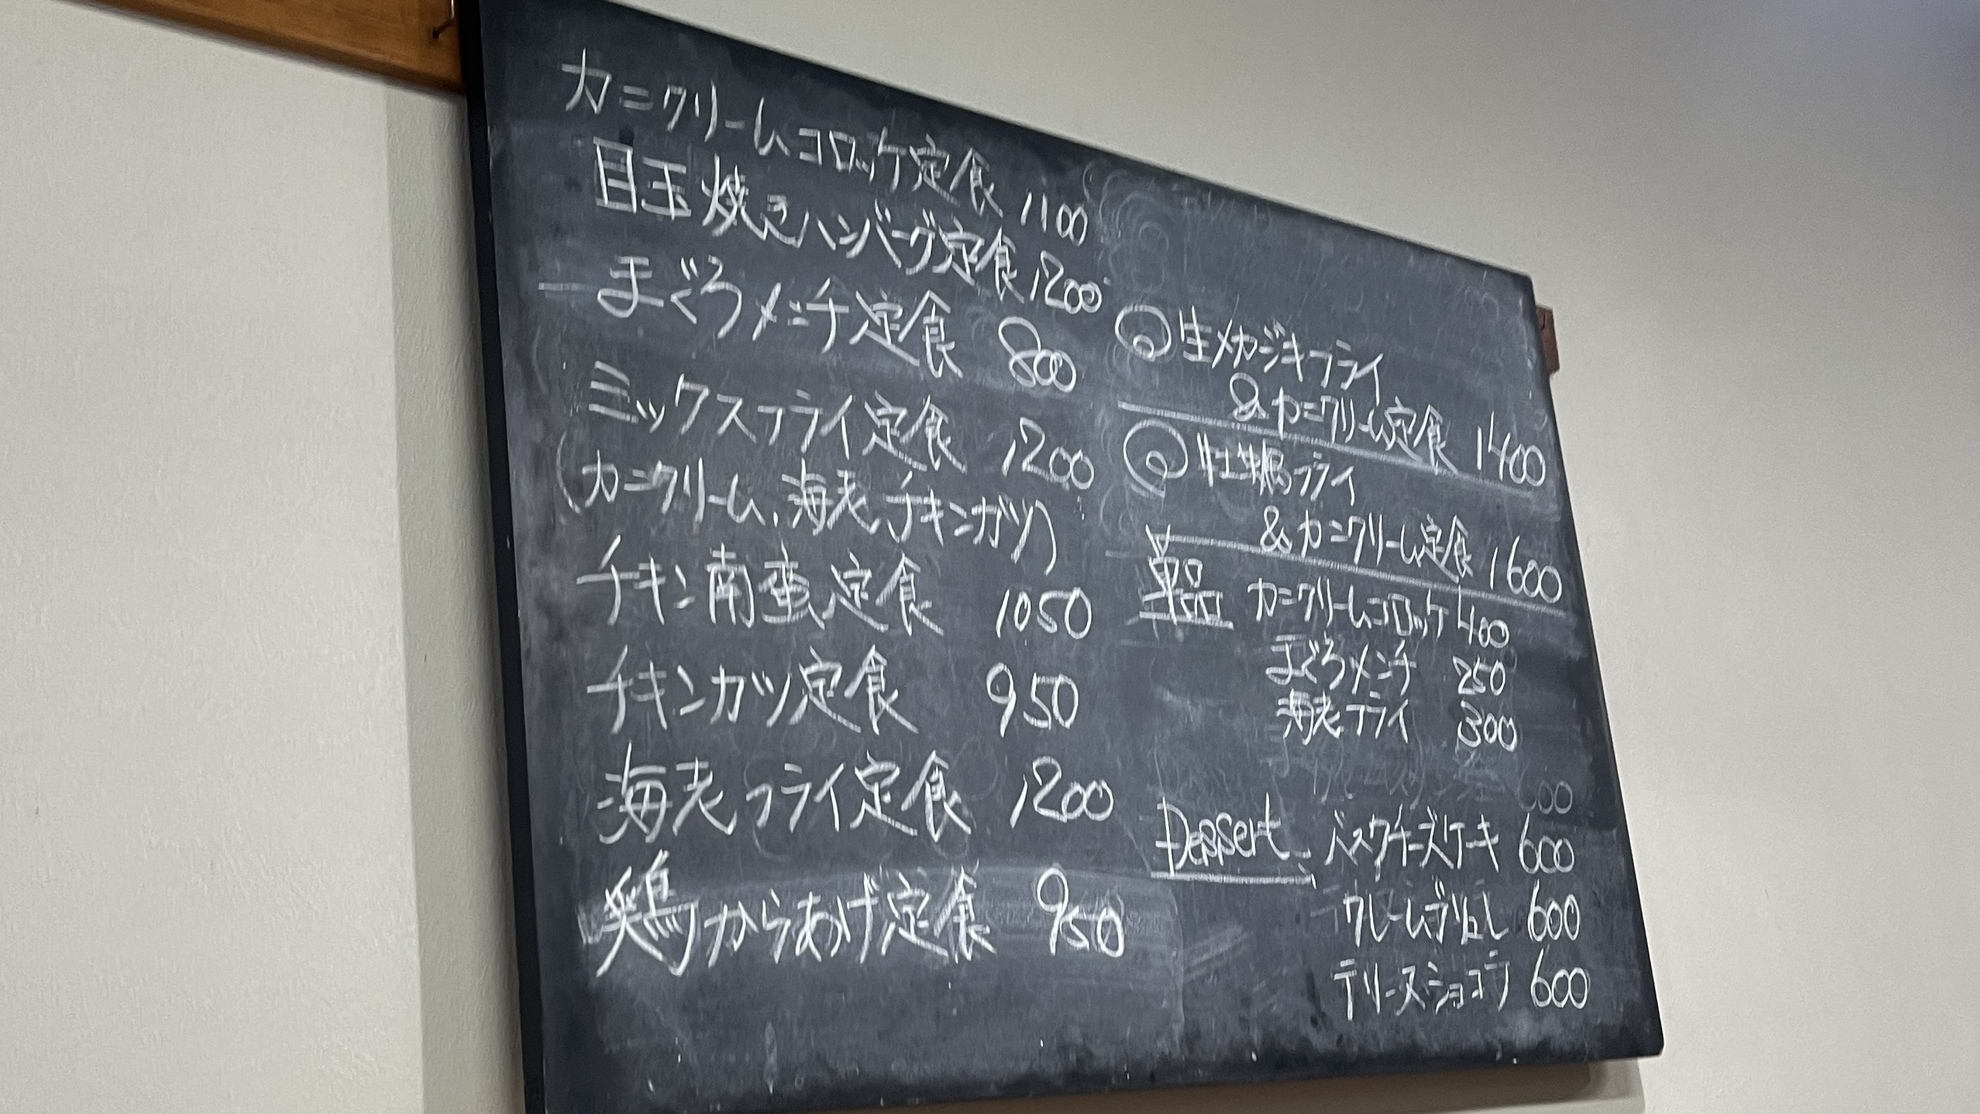 カニクリームコロッケ定食 1100
目玉焼きハンバーグ定食 1200
まぐろメンチ定食 800
ミックスフライ定食 1200
(カニクリーム、海老、チキンカツ)
チキン南蛮定食 1050
チキンカツ定食 950
海老フライ定食 1200
鶏からあげ定食 950
◎生メカジキフライ
&カニクリーム定食 1400
◎牡蠣フライ
&カニクリーム定食 1600
単品 カニクリームコロッケ 400
まぐろメンチ 250
海老フライ 300
Dessert バスクチーズケーキ 600
クレームブリュレ 600
テリーヌショコラ 600